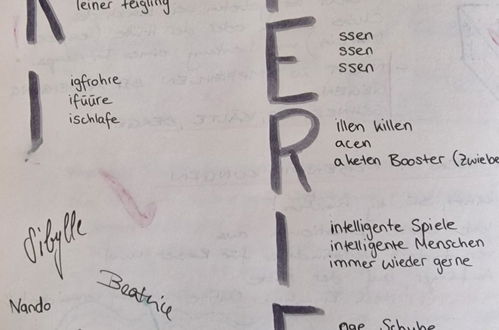 K
leiner feigling
I
igfrohre
ifüüre
ischlafe
Sibylle
Beatrice
Nando
E
ssen
ssen
ssen
R
illen killen
acen
aketen Booster (Zwiebe
I
intelligente Spiele
intelligente Menschen
immer wieder gerne
nge Schuhe